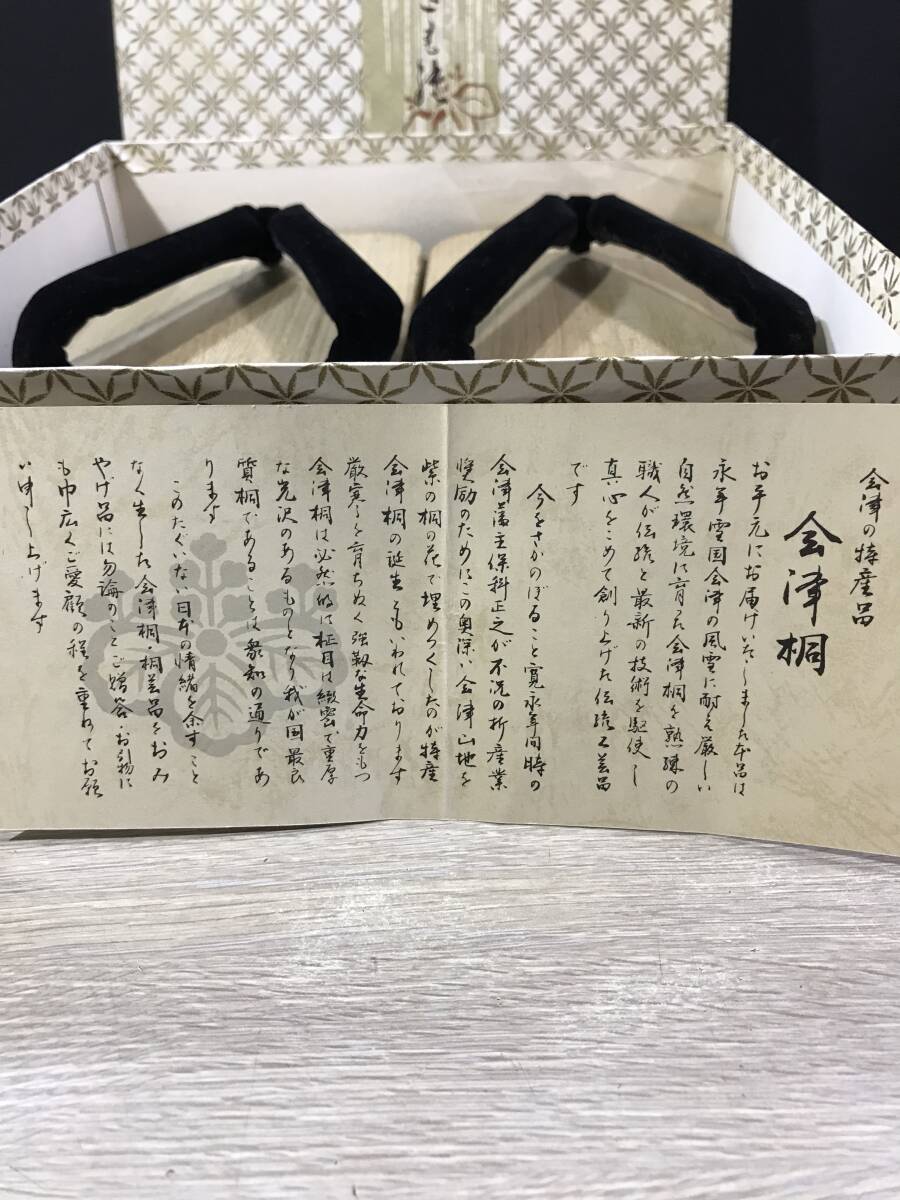 会津の特産品
会津桐
お手元にお届けいたしました本品は
永年雪国会津の風雪に耐え厳しい
自然環境に育った会津桐を熟練の
職人が伝統と最新の技術を駆使し
真心をこめて創り上げた伝統工芸品
です
今をさかのぼること寛永年間時の
会津藩主保科正之が不況の折産業
奨励のためにこの奥深い会津山地を
紫の桐の花で埋めつくしたのが特産
会津桐の誕生ともいわれております
厳寒を育ちぬく強靱な生命力をもつ
会津桐は必然的に柾目は緻密で重厚
な光沢のあるものとなり我が国最良
質桐であることは衆知の通りであ
ります
このたぐいない日本の情緒を余すこと
なく生した会津桐・桐芸品をおみ
やげ品には勿論のことご贈答・お引物に
も巾広くご愛顧の程を重ねてお願
い申し上げます